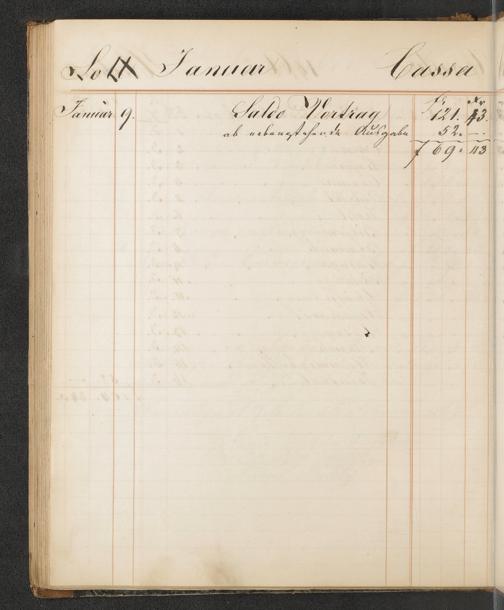 Januar Cassa
fr. xr
Januar 9. Saldo Vortrag 121. 43.
ab nebenstehende Ausgabe 52. —
f 69. 43